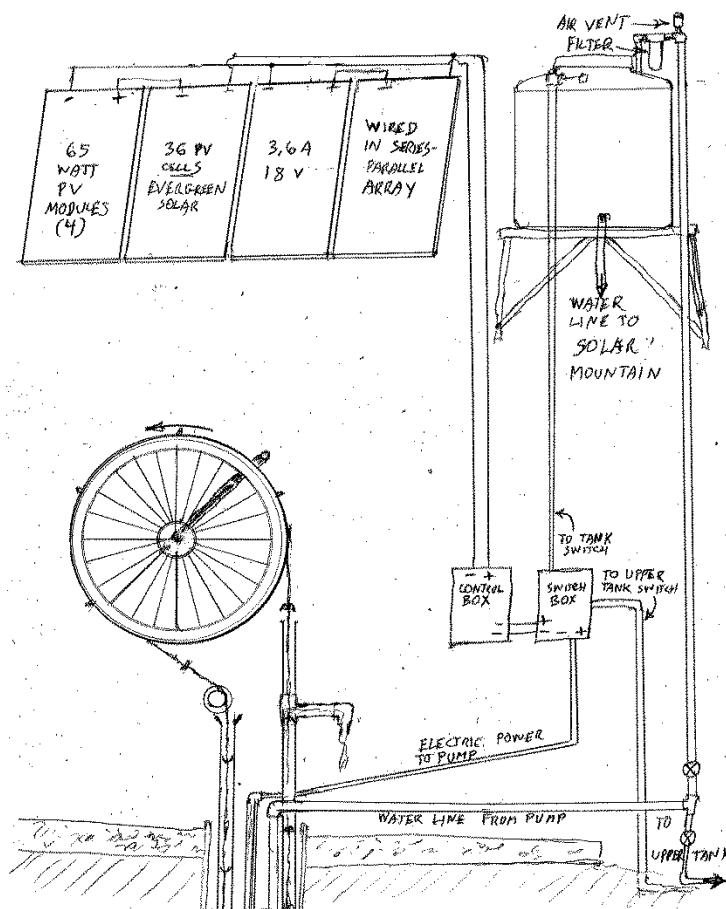 AIR VENT
FILTER
65
WATT
PV
MODULES
(4)
36 PV
CELLS
EVERGREEN
SOLAR
3.6 A
18 V
WIRED
IN SERIES-
PARALLEL
ARRAY
WATER
LINE TO
SOLAR
MOUNTAIN
TO TANK
SWITCH
TO UPPER
TANK SWITCH
- +
CONTROL
BOX
SWITCH
BOX
+
- - +
ELECTRIC POWER
TO PUMP
WATER LINE FROM PUMP
TO
UPPER TANK